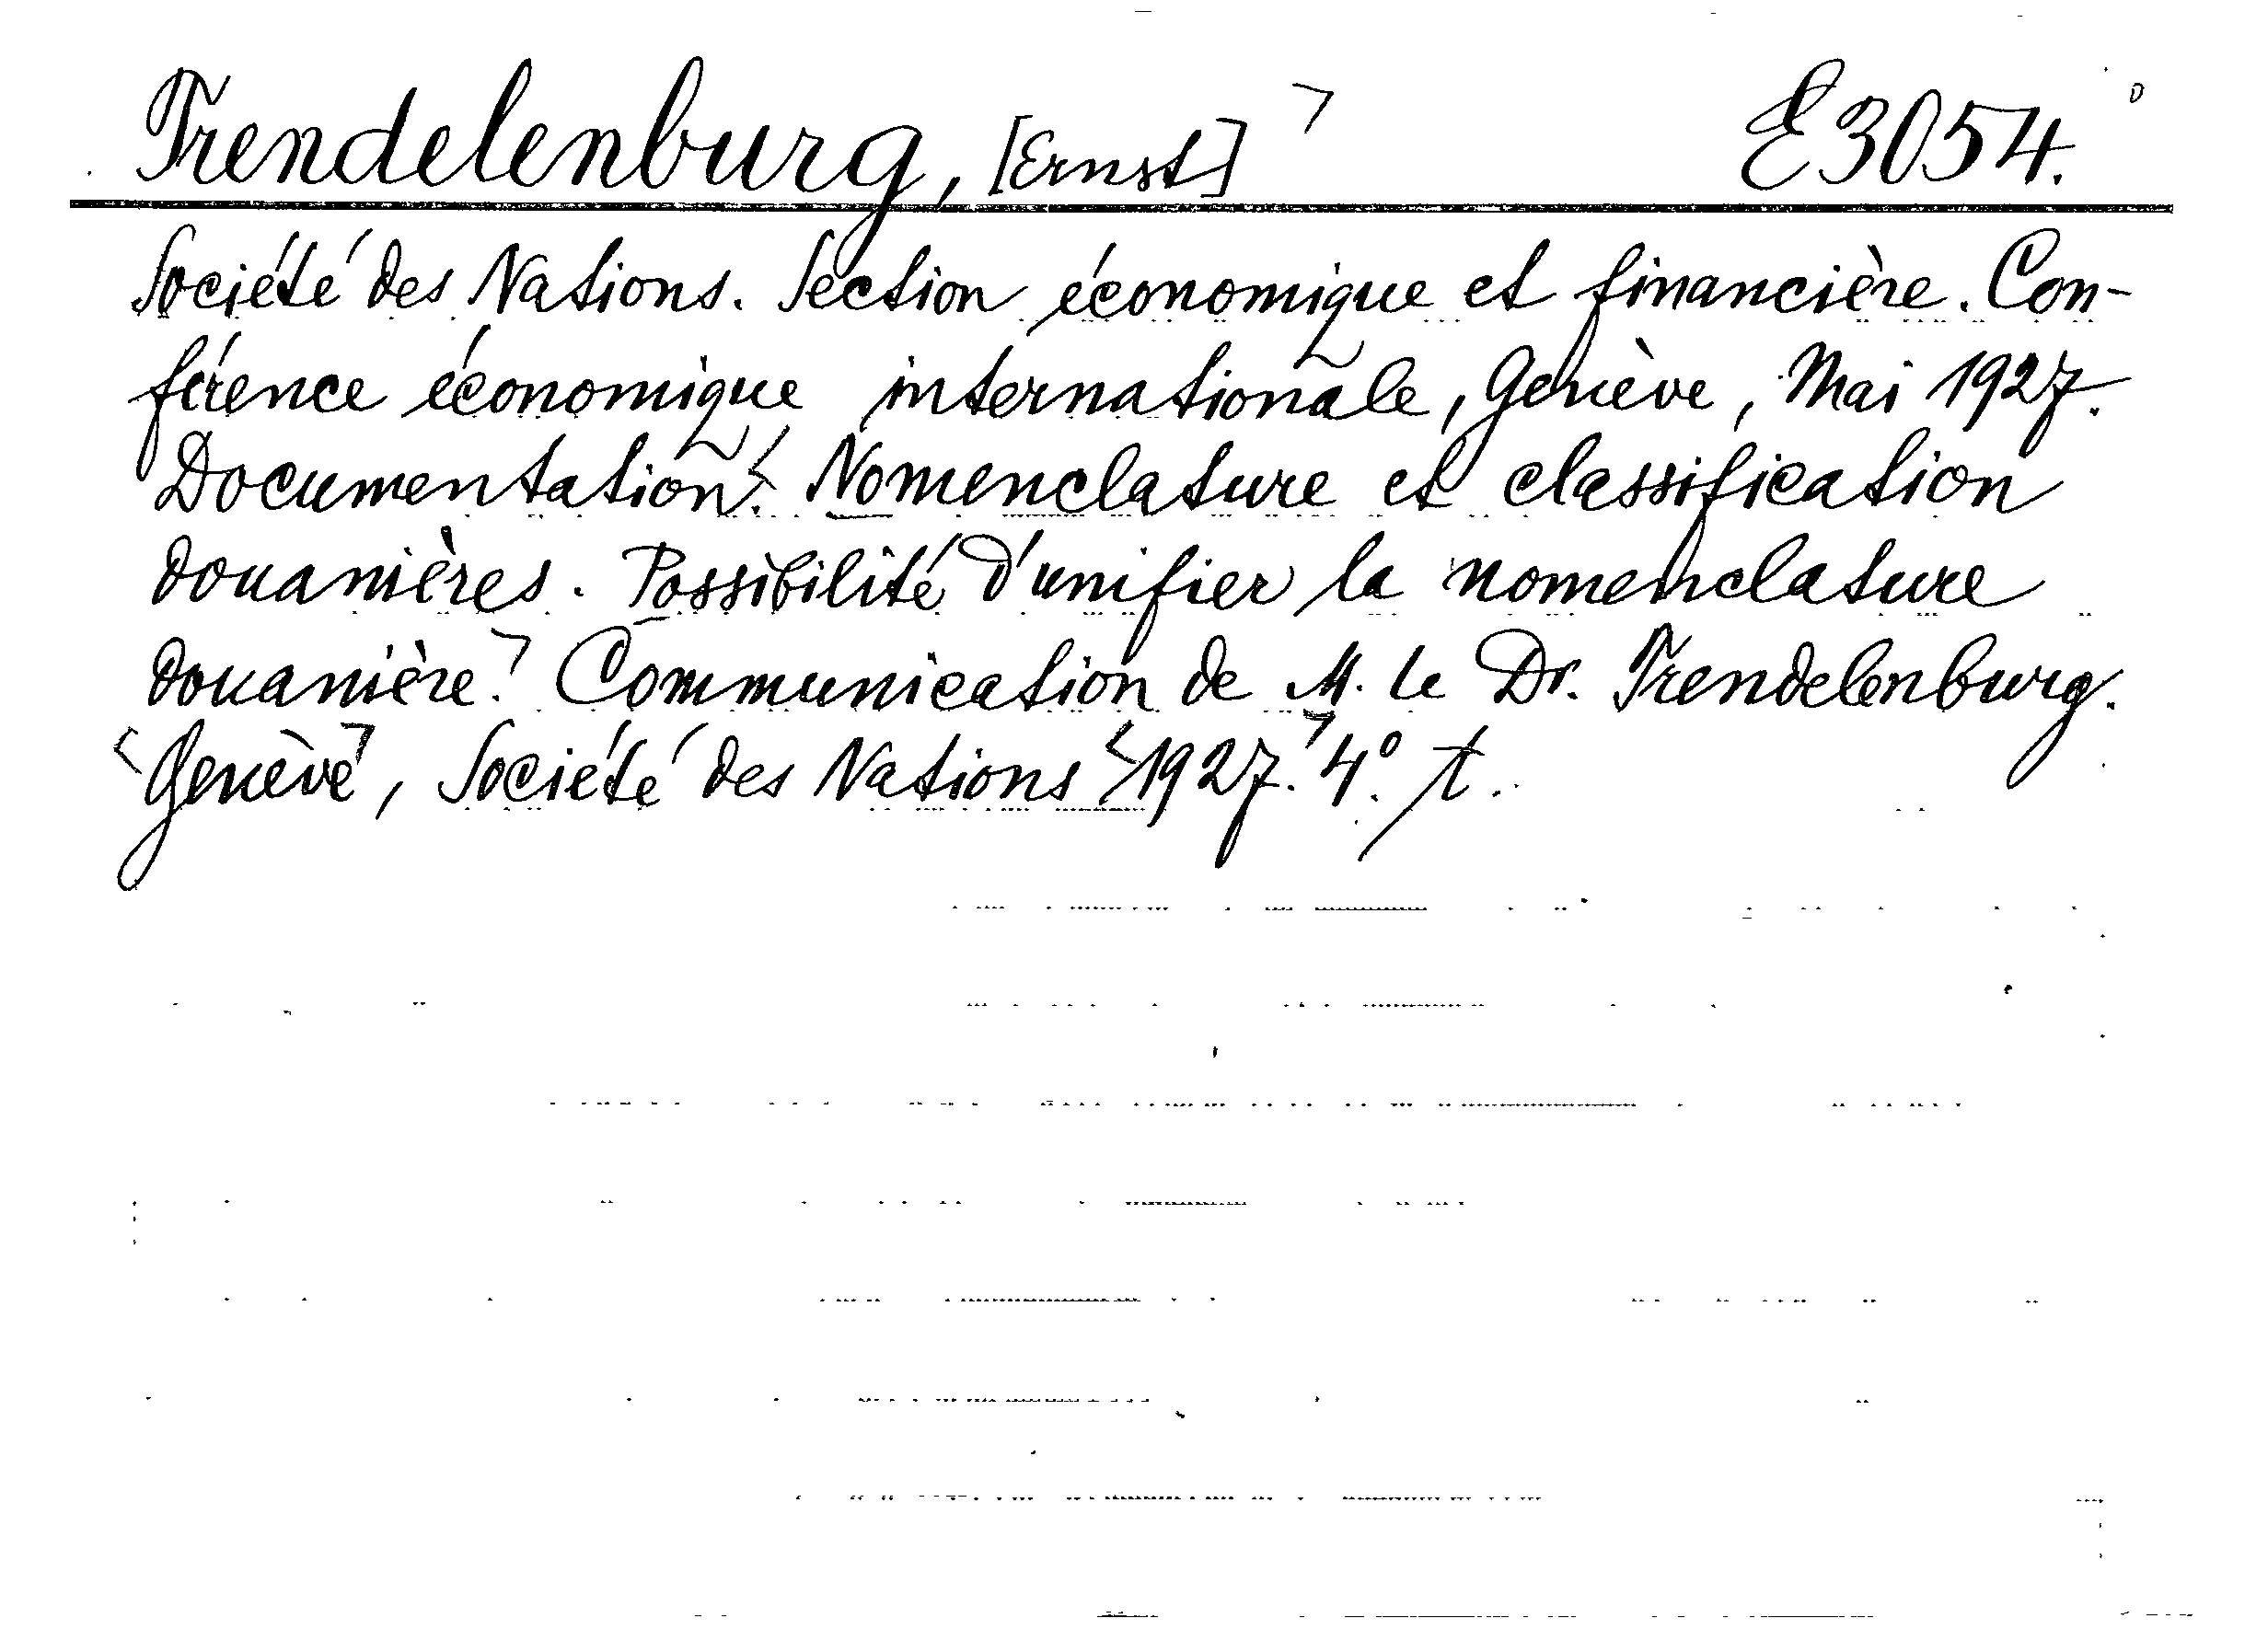 Trendelenburg, [Ernst] E3054.
Société des Nations. Section économique et financière. Con-
férence économique internationale, Genève, Mai 1927.
Documentation. Nomenclature et classification
douanières. Possibilité d'unifier la nomenclature
douanière. Communication de M. le Dr. Trendelenburg.
Genève, Société des Nations 1927. 4°. t.